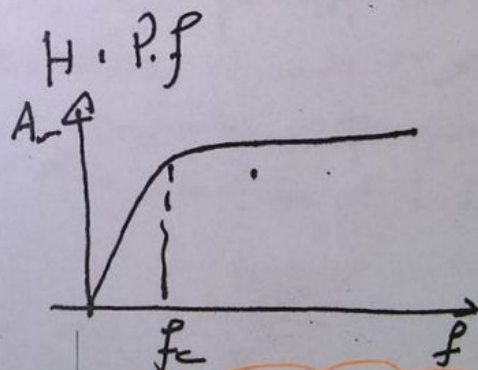 H.P.f
Av
fc f